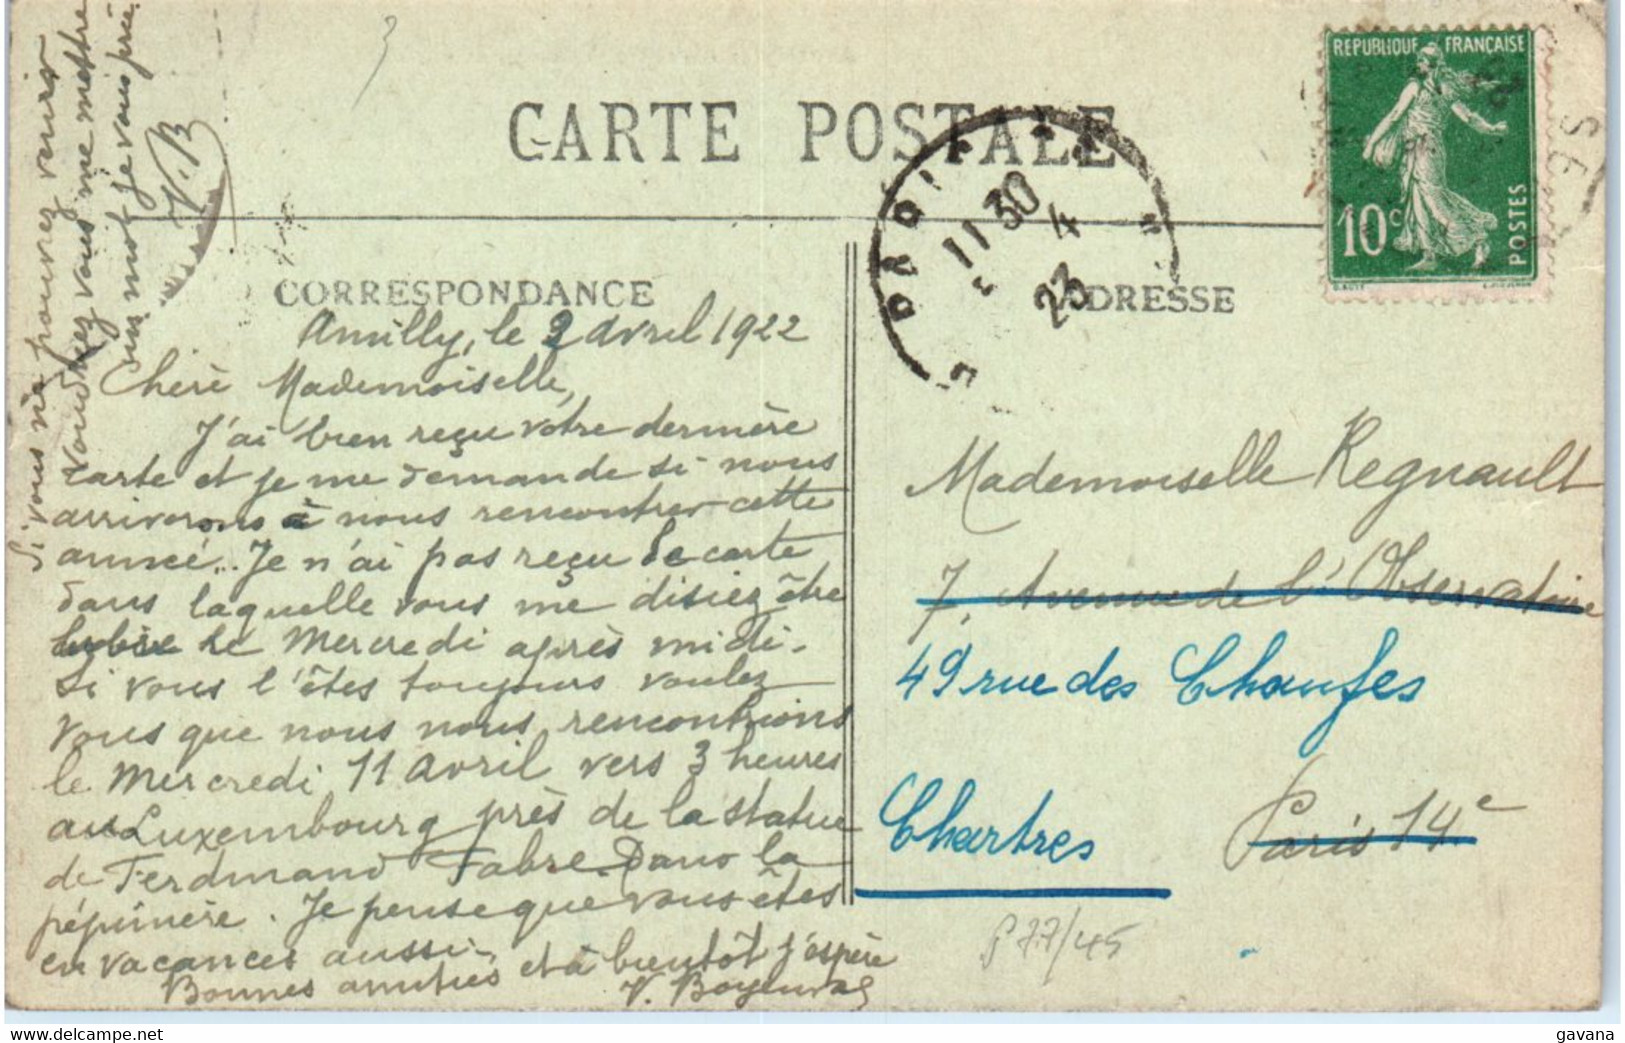 CARTE POSTALE
CORRESPONDANCE
Amilly, le 2 Avril 1922
Chère Mademoiselle,
J'ai bien reçu votre dernière
carte et je me demande si nous
arriverons à nous rencontrer cette
année. Je n'ai pas reçu de carte
dans laquelle vous me disiez être
libre le Mercredi après midi.
Si vous l'êtes toujours voulez
vous que nous nous rencontrions
le Mercredi 11 Avril vers 3 heures
au Luxembourg près de la statue
de Ferdinand Fabre. Dans la
pépinière. Je pense que vous êtes
en vacances aussi.
Bonnes amitiés et à bientôt j'espère
V.
Si vous ne pouvez venir
voudriez vous me mettre
un mot je vous prie
V. B
ADRESSE
REPUBLIQUE FRANÇAISE
10c
POSTES
PARIS
11 30
5 4
23
Mademoiselle Regnault
7, Avenue de l'Observatoire
49 rue des Chauffes
Chartres
Paris 14e
77/45
gavana